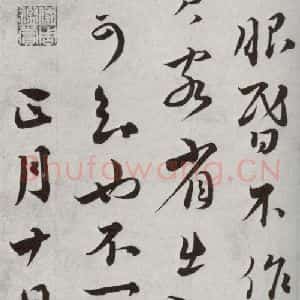 眼昏不作
省出
可知也不一
正月十日
Shufawang.CN